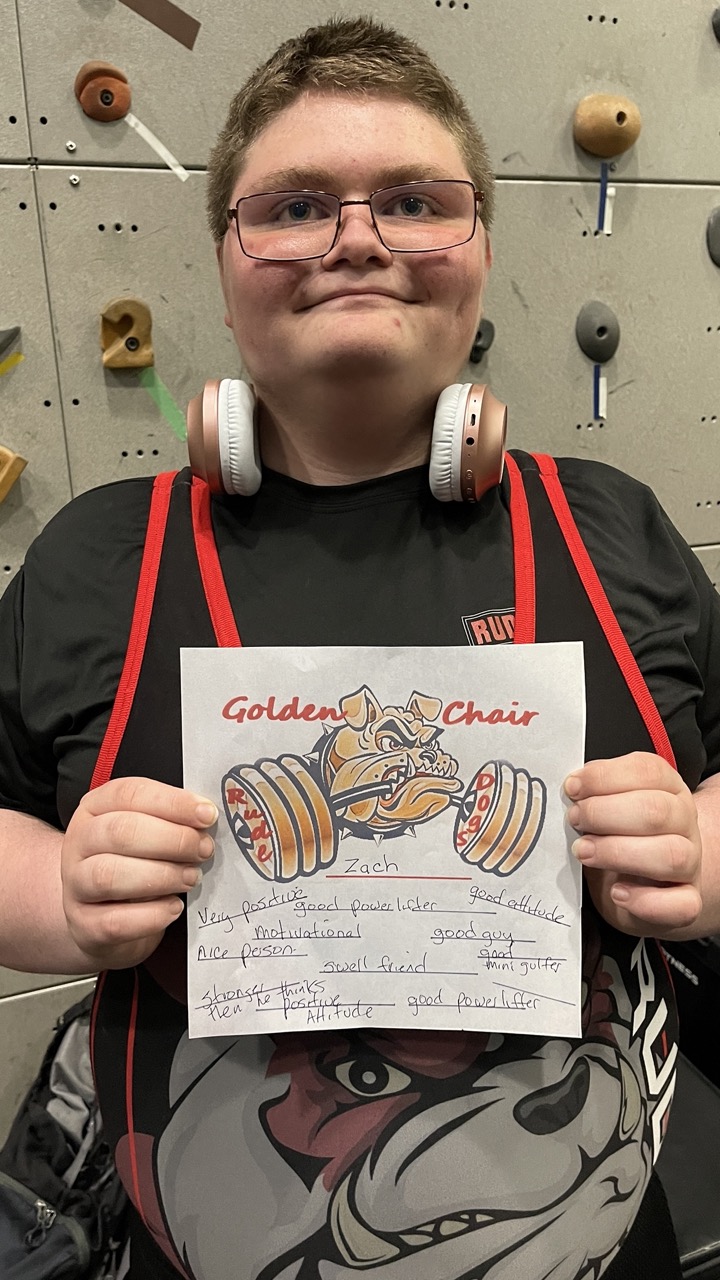 RUD
Golden Chair
Rude Dogs
Zach
Very positive good powerlifter good attitude
motivational good guy
nice person good
swell friend mini gulfer
stronger thinks
then he positive good powerlifter
Attitude
RUD
NESS